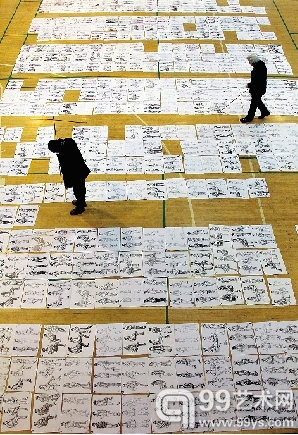 99艺术网
www.99ys.com